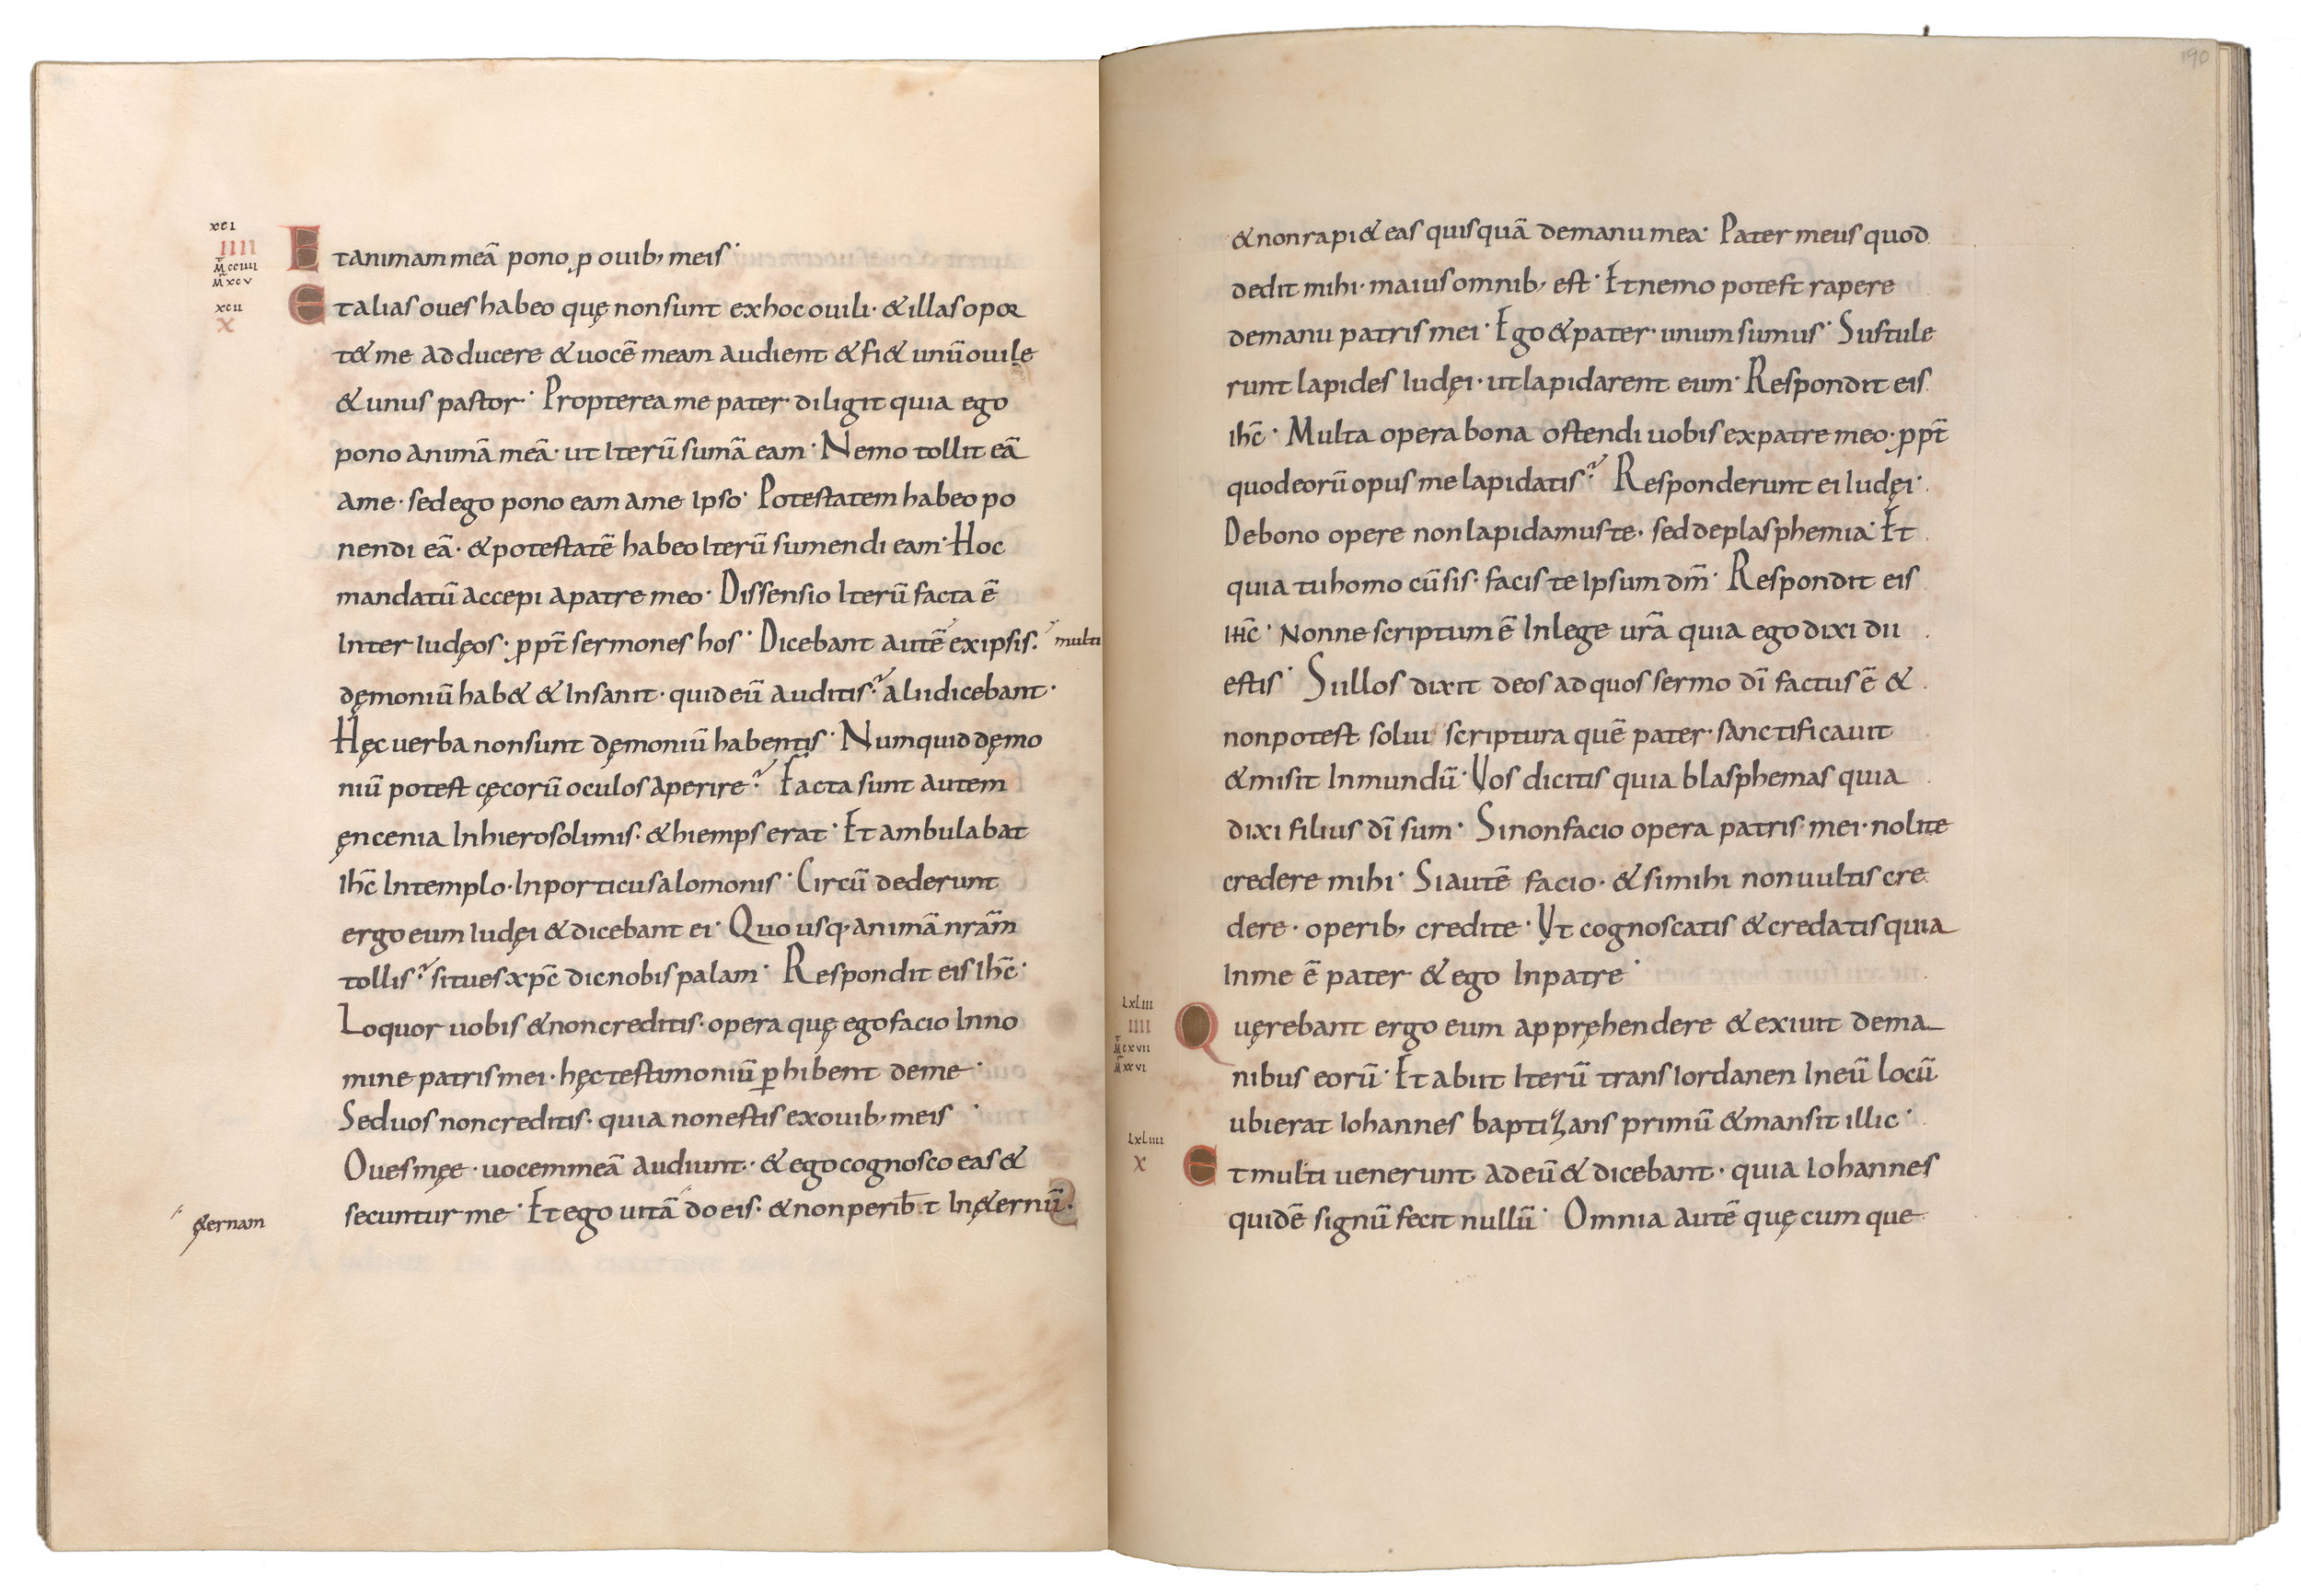 xci
IIII
M̄ cciiii
M̄ xcv
Et animam meā pono p̱ ouib; meis·
xcii
X
Et alias oues habeo quę non sunt ex hoc ouili· & illas opor
t& me adducere & uocē meam audient & fi& unū ouile
& unus pastor· Propterea me pater diligit quia ego
pono animā meā· ut Iterū sumā eam· Nemo tollit eā
a me· sed ego pono eam a me Ipso· Potestatem habeo po
nendi eā· & potestatē habeo Iterū sumendi eam· Hoc
mandatū accepi a patre meo· Dissensio Iterū facta ē
Inter Iudęos· p̱pt̄ sermones hos· Dicebant autē ex ipsis· multi
dęmoniū hab& & Insanit· quid eū auditis? alii dicebant·
Hęc uerba non sunt dęmoniū habentis· Numquid dęmo
niū potest cęcorū oculos aperire? Facta sunt autem
ęncenia In hierosolimis· & hiemps erat· Et ambulabat
Ihc̄ In templo· In porticu salomonis· Circū dederunt
ergo eum Iudęi & dicebant ei· Quo usq; animā nrām
tollis? si tu es xpc̄ dic nobis palam· Respondit eis Ihc̄·
Loquor uobis & non creditis· opera quę ego facio In no
mine patris mei· hęc testimoniū ꝑhibent de me·
Sed uos non creditis· quia non estis ex ouib; meis·
Oues męe· uocem meā audiunt· & ego cognosco eas &
secuntur me· Et ego uitā do eis· & non perib·t In &ernū·
&ernam
190
& non rapi& eas quisquā de manu mea· Pater meus quod
dedit mihi· maius omnib; est· Et nemo potest rapere
de manu patris mei· Ego & pater· unum sumus· Sustule
runt lapides Iudęi· ut lapidarent eum· Respondit eis
ihc̄· Multa opera bona ostendi uobis ex patre meo· p̱pt̄
quod eorū opus me lapidatis? Responderunt ei Iudęi·
De bono opere non lapidamus te· sed de plasphemia· Et
quia tu homo cū sis· facis te Ipsum dm̄· Respondit eis
Ihc̄· Nonne scriptum ē In lege ur̄a quia ego dixi dii
estis· Si illos dixit deos ad quos sermo dī factus ē &
non potest solui scriptura quē pater· sanctificauit
& misit In mundū· Vos dicitis quia blasphemas quia
dixi filius dī sum· Si non facio opera patris mei· nolite
credere mihi· Si autē facio· & si mihi non uultis cre
dere· operib; credite· Vt cognoscatis & credatis quia
In me ē pater & ego In patre·
Lxliii
IIII
M̄ cxvii
M̄ xxvi
Quęrebant ergo eum appręhendere & exiuit de ma
nibus eorū· Et abiit Iterū trans Iordanen In eū locū
ubi erat Iohannes baptizans primū & mansit illic·
Lxliiii
X
Et multi uenerunt ad eū & dicebant· quia Iohannes
quidē signū fecit nullū· Omnia autē quę cum que